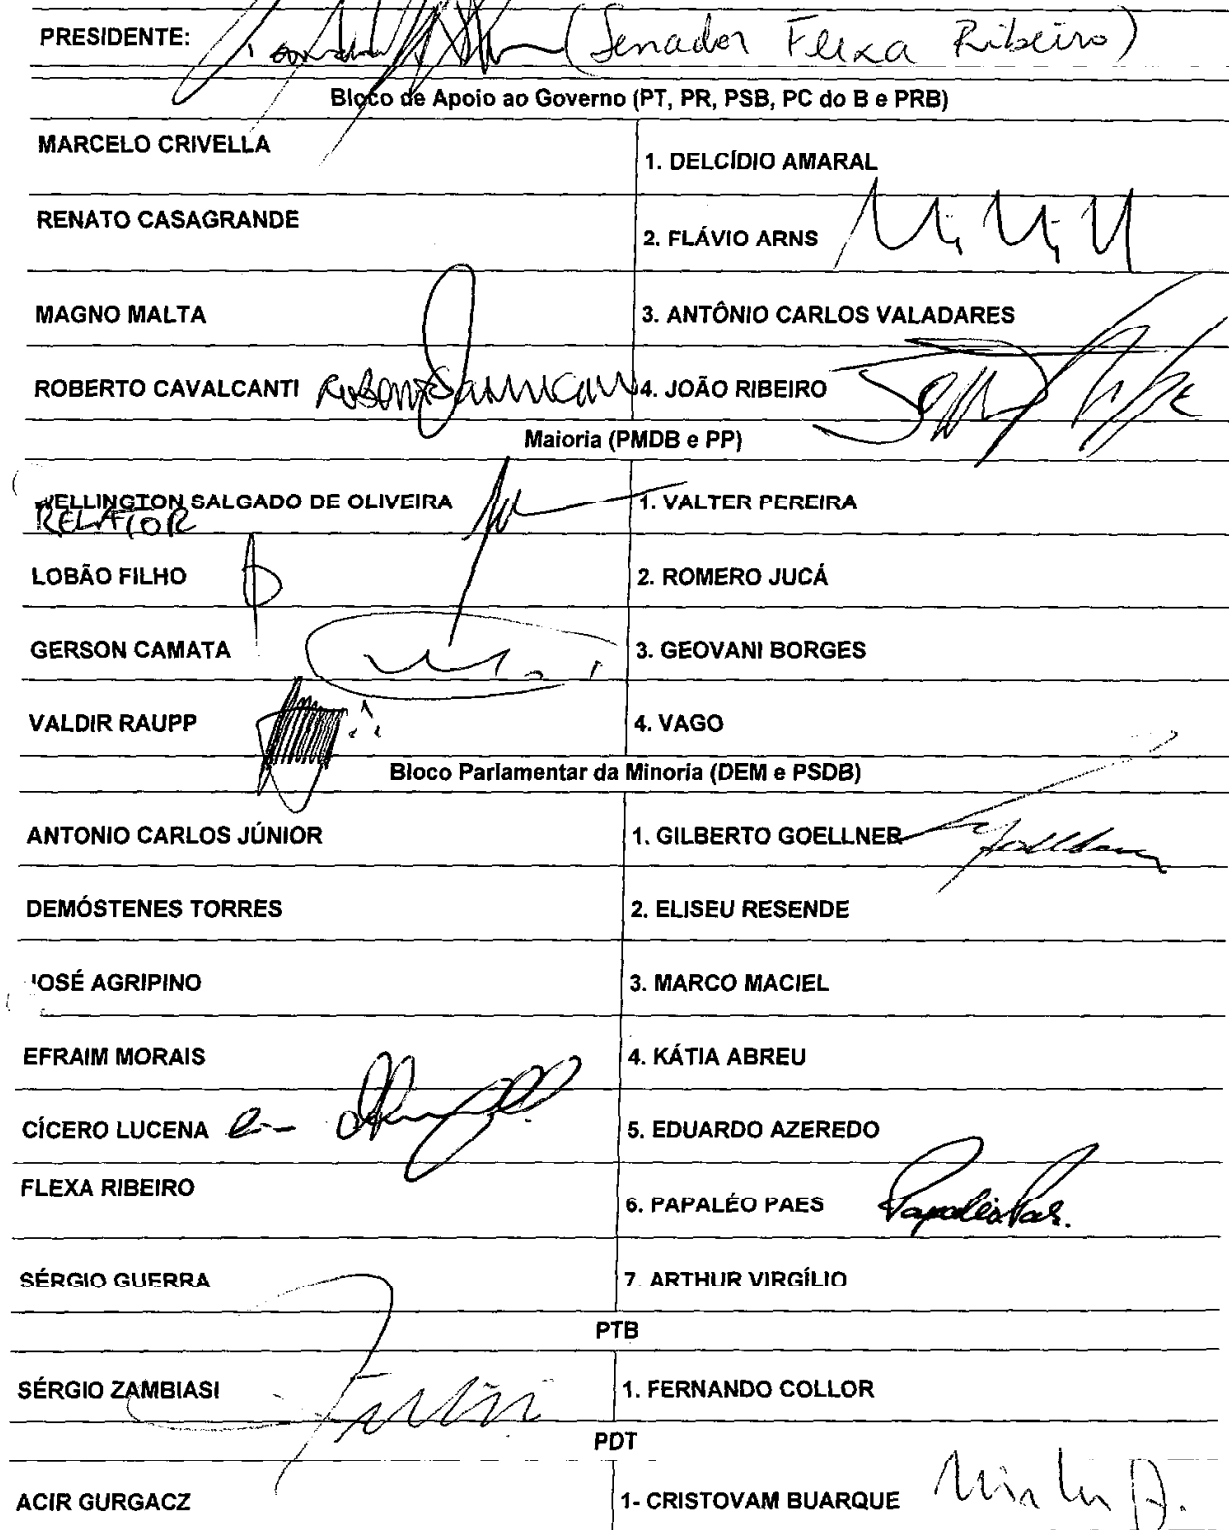 PRESIDENTE: (Senador Flexa Ribeiro)
Bloco de Apoio ao Governo (PT, PR, PSB, PC do B e PRB)
MARCELO CRIVELLA
1. DELCÍDIO AMARAL
RENATO CASAGRANDE
2. FLÁVIO ARNS
MAGNO MALTA
3. ANTÔNIO CARLOS VALADARES
ROBERTO CAVALCANTI
4. JOÃO RIBEIRO
Maioria (PMDB e PP)
WELLINGTON SALGADO DE OLIVEIRA
RELATOR
1. VALTER PEREIRA
LOBÃO FILHO
2. ROMERO JUCÁ
GERSON CAMATA
3. GEOVANI BORGES
VALDIR RAUPP
4. VAGO
Bloco Parlamentar da Minoria (DEM e PSDB)
ANTONIO CARLOS JÚNIOR
1. GILBERTO GOELLNER
DEMÓSTENES TORRES
2. ELISEU RESENDE
JOSÉ AGRIPINO
3. MARCO MACIEL
EFRAIM MORAIS
4. KÁTIA ABREU
CÍCERO LUCENA
5. EDUARDO AZEREDO
FLEXA RIBEIRO
6. PAPALÉO PAES Papaléo Paes.
SÉRGIO GUERRA
7. ARTHUR VIRGÍLIO
PTB
SÉRGIO ZAMBIASI
1. FERNANDO COLLOR
PDT
ACIR GURGACZ
1- CRISTOVAM BUARQUE